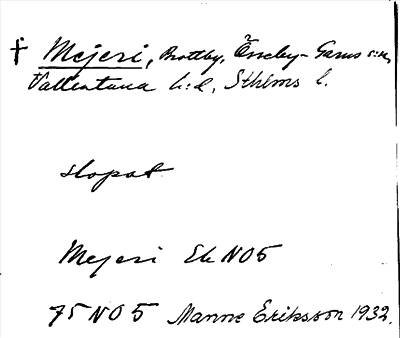 † Mejeri, Brottby, Össeby-Garns s:n,
Vallentuna h:d, Sthlms l.
slopat
Mejeri Ek N05
75 N05 Manne Eriksson 1932.